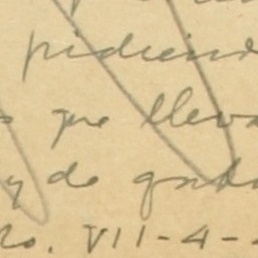 pidiend
que lleva
y de
ro. VII-4-